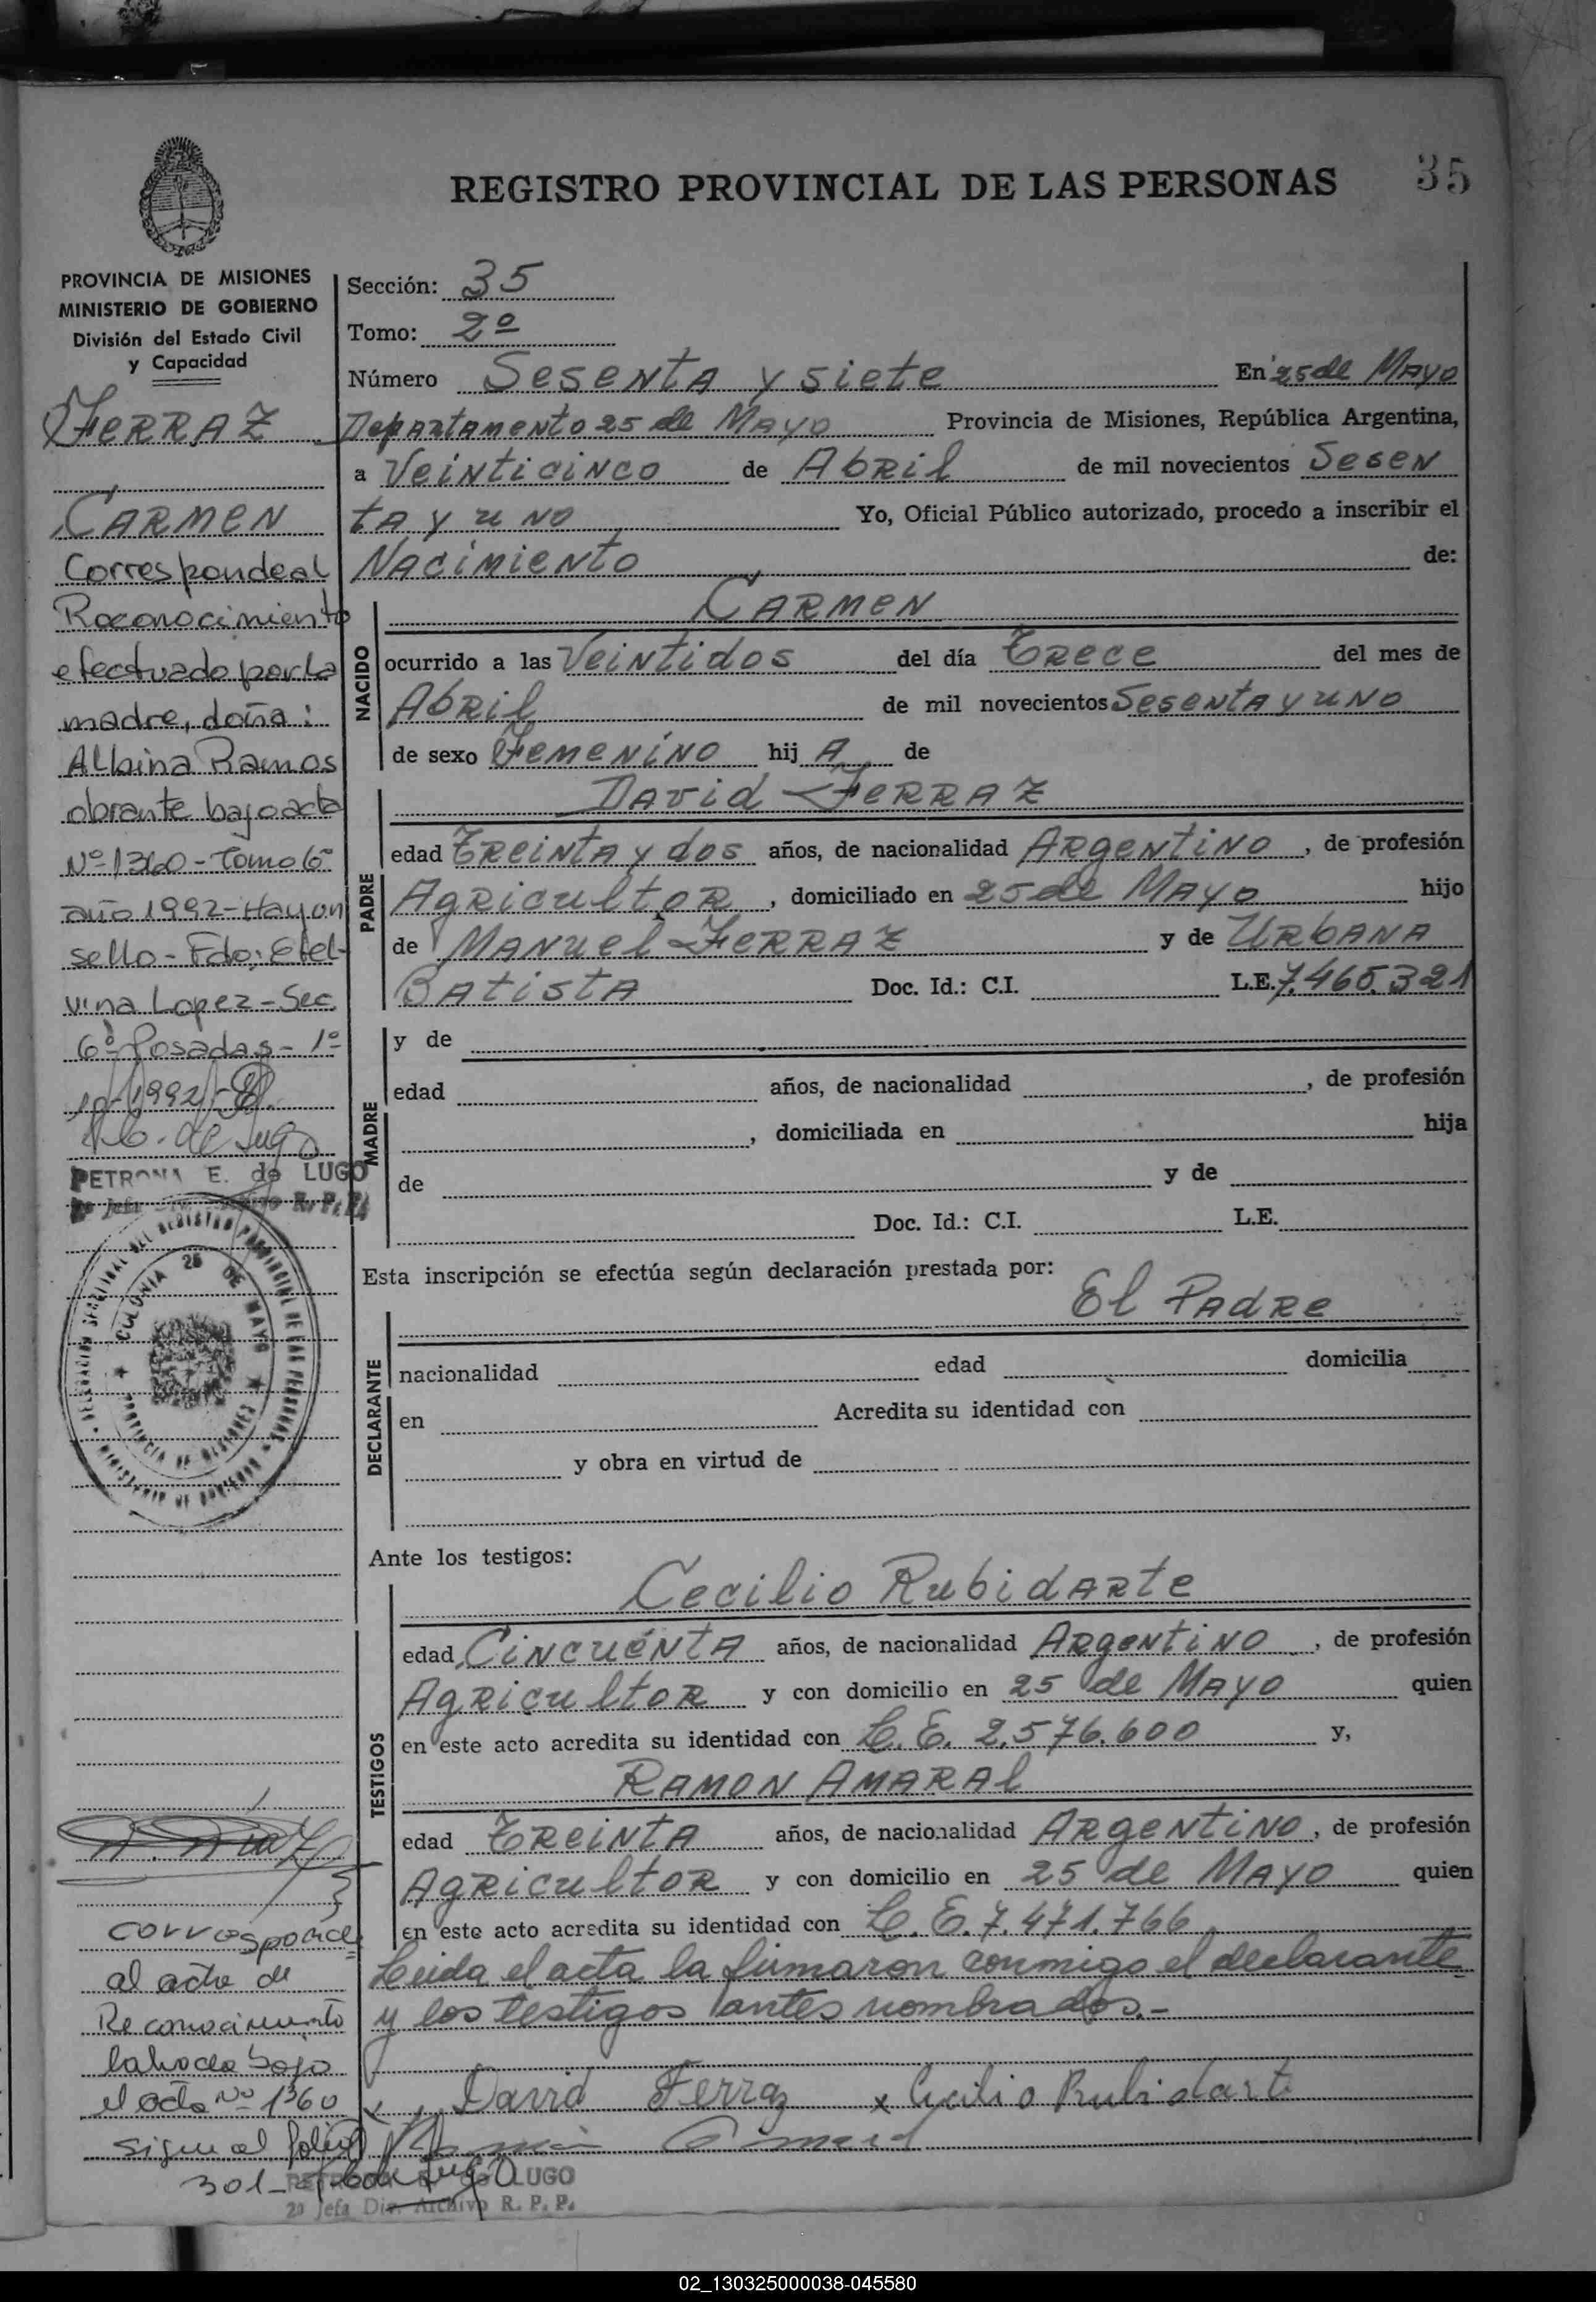 REGISTRO PROVINCIAL DE LAS PERSONAS
35
PROVINCIA DE MISIONES
MINISTERIO DE GOBIERNO
División del Estado Civil
y Capacidad
FERRAZ
CARMEN
Corresponde al
Reconocimiento
efectuado por la
madre, doña:
Albina Ramos
obrante bajo acta
Nº 1360 - Tomo 6º
año 1992 - Hay un
sello - Fdo: Etel-
vina Lopez - Sec.
6º Posadas - 1º
10-1992-
PETRONA E. de LUGO
2º Jefa R. P. P.
DELEGACION SECCIONAL DEL REGISTRO PROVINCIAL DE LAS PERSONAS
MINISTERIO DE GOBIERNO
COLONIA 25 DE MAYO
PROVINCIA DE MISIONES
corresponde
al acta de
Reconocimiento
labrada bajo
el acta Nº 1360
sigue al folio
301-
PETRONA E. de LUGO
2º Jefa Dir. Archivo R. P. P.
Sección: 35
Tomo: 2º
Número Sesenta y siete En 25 de Mayo
Departamento 25 de Mayo Provincia de Misiones, República Argentina,
a Veinticinco de Abril de mil novecientos Sesen
ta y uno Yo, Oficial Público autorizado, procedo a inscribir el
Nacimiento de:
NACIDO
CARMEN
ocurrido a las Veintidos del día Trece del mes de
Abril de mil novecientos Sesenta y uno
de sexo Femenino hij A de
PADRE
David FERRAZ
edad Treinta y dos años, de nacionalidad Argentino, de profesión
Agricultor, domiciliado en 25 de Mayo hijo
de Manuel FERRAZ y de Urbana
Batista Doc. Id.: C.I. L.E. 7.465.321
MADRE
y de
edad años, de nacionalidad , de profesión
, domiciliada en hija
de y de
Doc. Id.: C.I. L.E.
Esta inscripción se efectúa según declaración prestada por:
El Padre
DECLARANTE
nacionalidad edad domicilia
en Acredita su identidad con
y obra en virtud de
Ante los testigos:
TESTIGOS
Cecilio Rubidarte
edad Cincuenta años, de nacionalidad Argentino, de profesión
Agricultor y con domicilio en 25 de Mayo quien
en este acto acredita su identidad con L.E. 2.576.600 y,
Ramon Amaral
edad Treinta años, de nacionalidad Argentino, de profesión
Agricultor y con domicilio en 25 de Mayo quien
en este acto acredita su identidad con L.E. 7.471.766.
Leida el acta la firmaron conmigo el declarante
y los testigos antes nombrados.-
David Ferraz x Cecilio Rubidarte
02_130325000038-045580